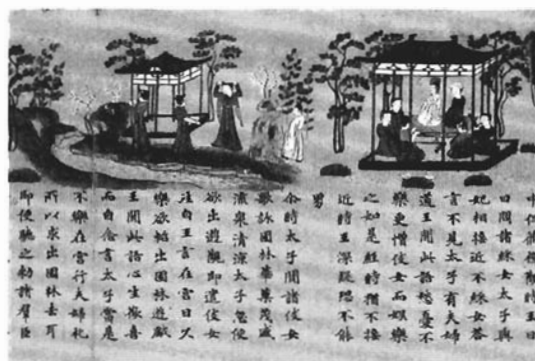 時王日
日問諸婇女太子與
妃相接近不婇女答
言不見太子有夫婦
道王聞此語愁憂不
樂更增伎女而娛樂
之如是經時猶不接
近時王深疑恐不能
男
尒時太子聞諸伎女
歌詠園林華菓茂盛
流泉清涼太子忽便
欲出遊觀即遣伎女
往白王言在宮日久
樂欲蹔出園林遊戲
王聞此語心生歡喜
而自念言太子當是
不樂在宮行夫婦礼
所以求出園林去耳
即便聽之勑諸羣臣